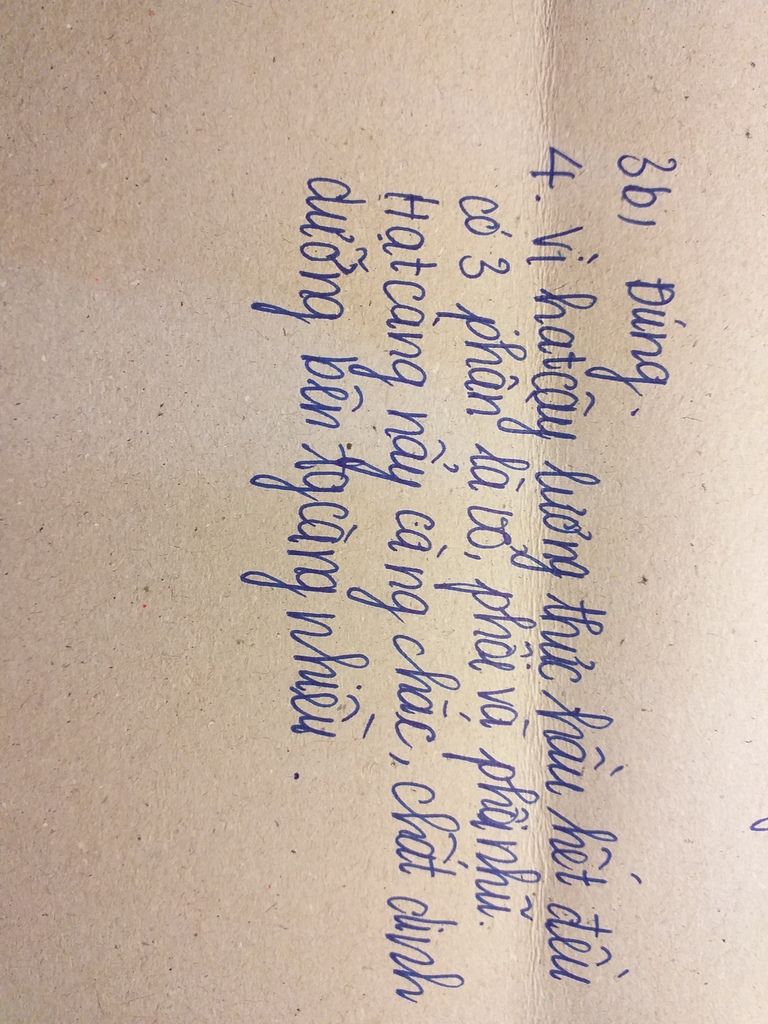 3b, Đúng.
4. Vì hạt cây lương thực hầu hết đều
có 3 phần là vỏ, phôi và phôi nhũ.
Hạt càng nẩy càng chắc, chất dinh
dưỡng bên tg càng nhiều.